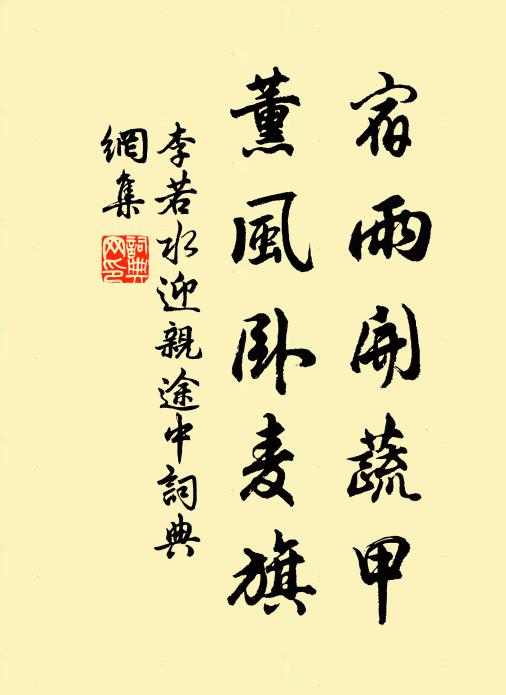 宿雨開蔬甲
薰風卧麦旗
李若水迎親途中詞典
網集
詞典網印